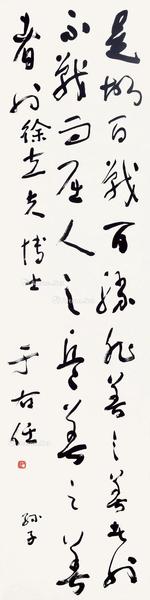 是故百戰百勝非善之善者也
不戰而屈人之兵善之善
者也
孫子
徐立夫博士
于右任